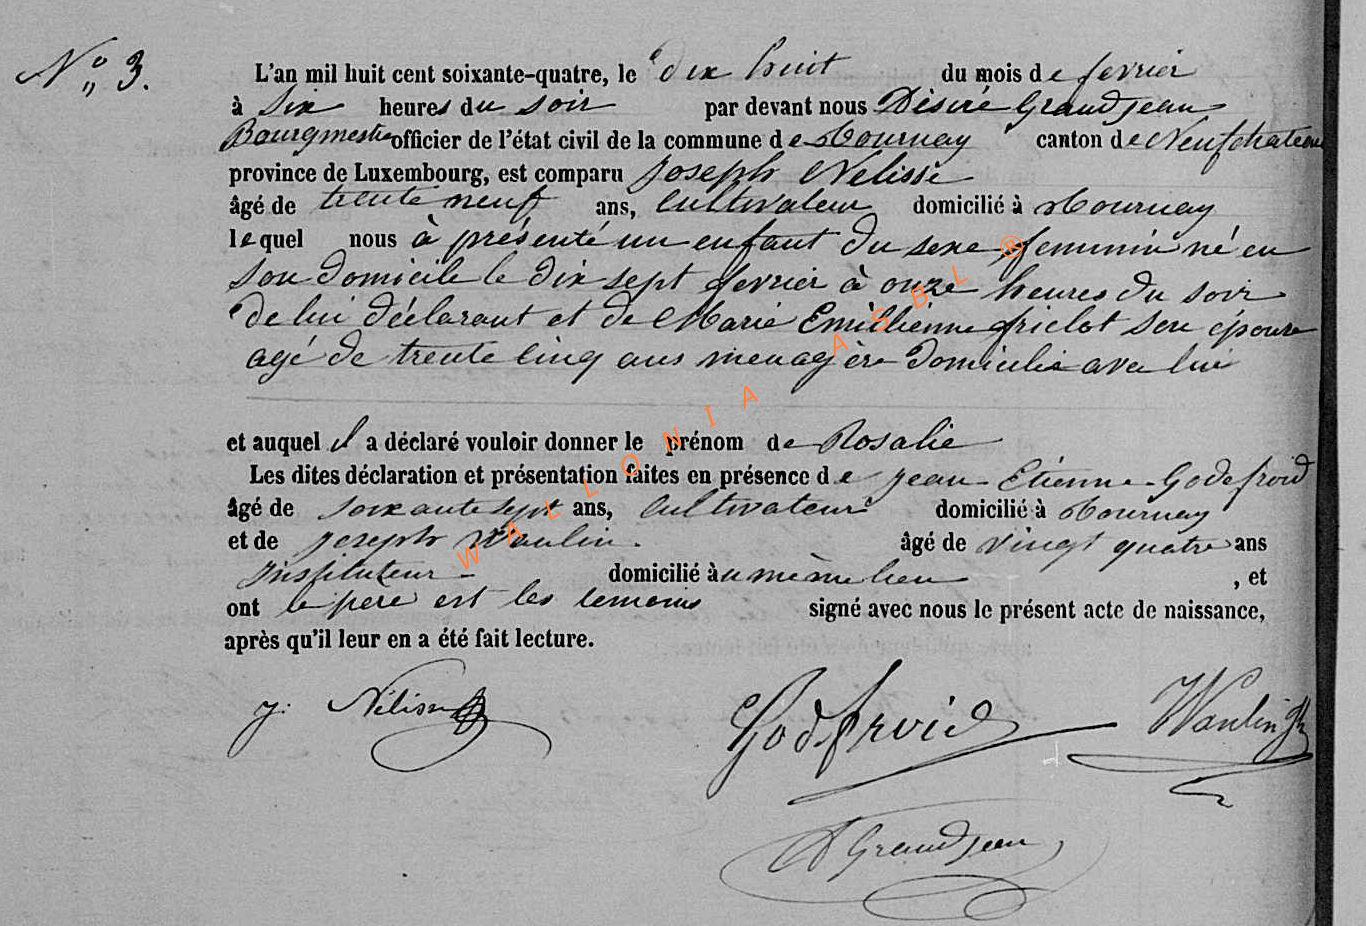 N° 3.
L'an mil huit cent soixante-quatre, le dix huit du mois de fevrier
à Six heures du soir par devant nous Désiré Grandjean
Bourgmestre officier de l'état civil de la commune de Tournay canton de Neufchateau
province de Luxembourg, est comparu Joseph Nelisse
âgé de trente neuf ans, Cultivateur domicilié à Tournay
lequel nous à présenté un enfant du sexe feminin né en
son domicile le dix sept fevrier à onze heures du soir
de lui déclarant et de Marie Emilienne son épouse
agé de trente cinq ans menagère domicilié avec lui
et auquel il a déclaré vouloir donner le prénom de Rosalie
Les dites déclaration et présentation faites en présence de Jean Etienne Godefroid
âgé de soixante sept ans, Cultivateur domicilié à Tournay
et de Joseph Waulin. âgé de vingt quatre ans
Instituteur domicilié au même lieu , et
ont le père est les temoins signé avec nous le présent acte de naissance,
après qu'il leur en a été fait lecture.
J. Nelisse
Godefroid
Waulin
D Grandjean
WALLONIA ASBL ®